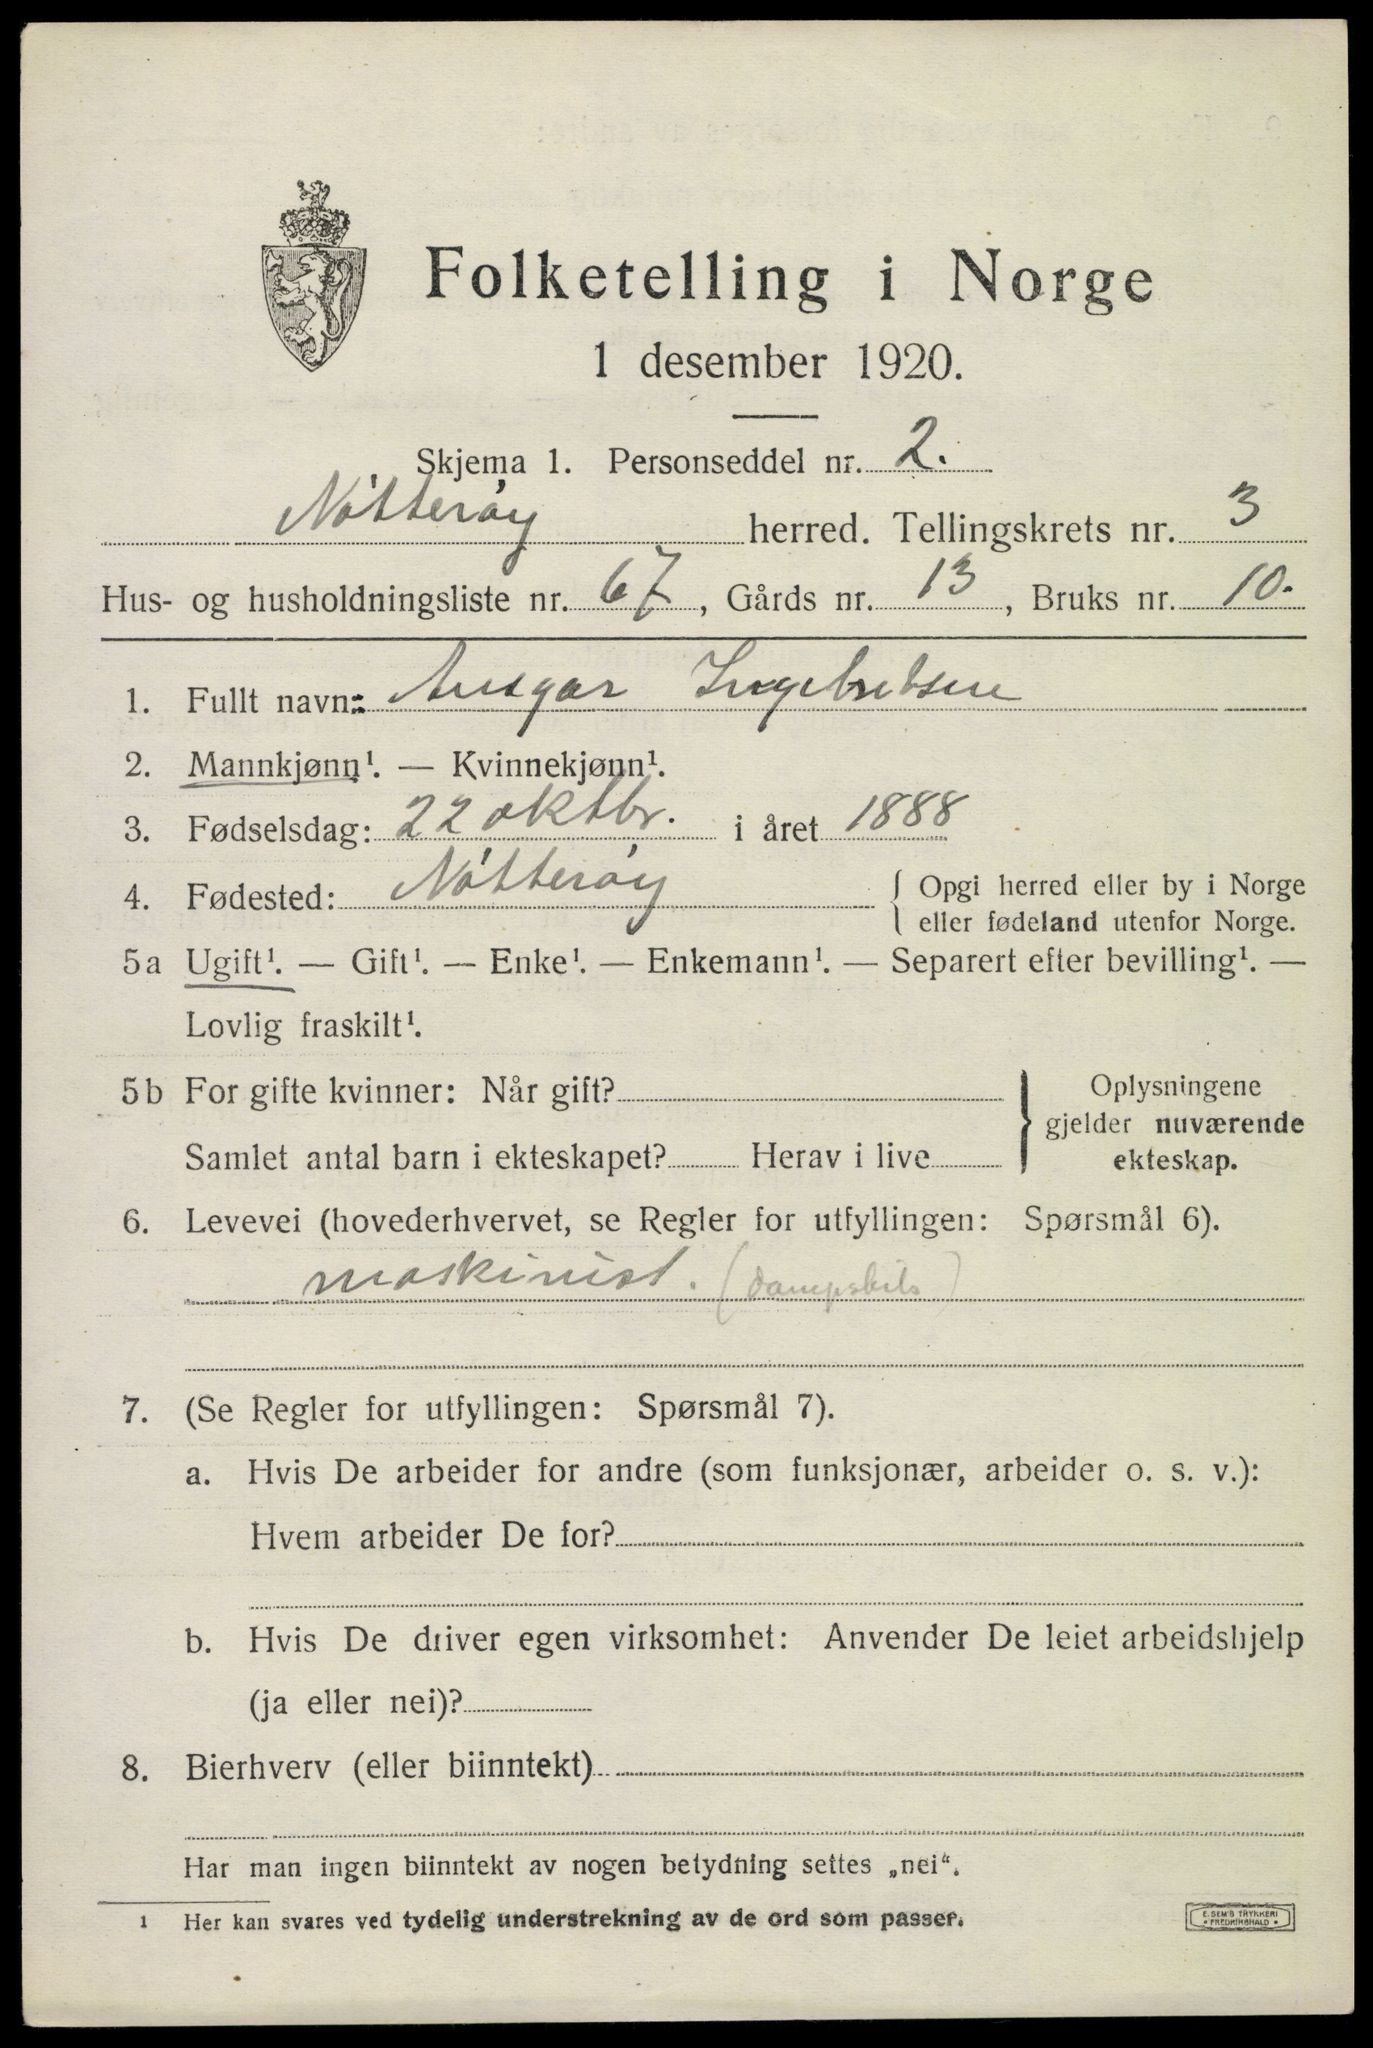 Folketelling i Norge
1 desember 1920.
Skjema 1. Personseddel nr. 2.
Nøtterøy herred. Tellingskrets nr. 3
Hus- og husholdningsliste nr. 67, Gårds nr. 13, Bruks nr. 10.
1. Fullt navn: Ansgar Ingebretsen
2. Mannkjønn¹. — Kvinnekjønn¹.
3. Fødselsdag: 22 oktbr. i året 1888
4. Fødested: Nøtterøy { Opgi herred eller by i Norge
eller fødeland utenfor Norge.
5a Ugift¹. — Gift¹. — Enke¹. — Enkemann¹. — Separert efter bevilling¹. —
Lovlig fraskilt¹.
5b For gifte kvinner: Når gift? } Oplysningene
gjelder nuværende
Samlet antal barn i ekteskapet? Herav i live ekteskap.
6. Levevei (hovederhvervet, se Regler for utfyllingen: Spørsmål 6).
maskinist. (dampskib)
7. (Se Regler for utfyllingen: Spørsmål 7).
a. Hvis De arbeider for andre (som funksjonær, arbeider o. s. v.):
Hvem arbeider De for?
b. Hvis De driver egen virksomhet: Anvender De leiet arbeidshjelp
(ja eller nei)?
8. Bierhverv (eller biinntekt)
Har man ingen biinntekt av nogen betydning settes „nei“.
1 Her kan svares ved tydelig understrekning av de ord som passer.
E. SEM'S TRYKKERI
• FREDRIKSHALD •